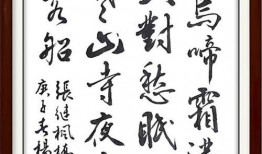 烏啼霜滿
火對愁眠
寒山寺夜
客船
張継楓橋
庚子春楊